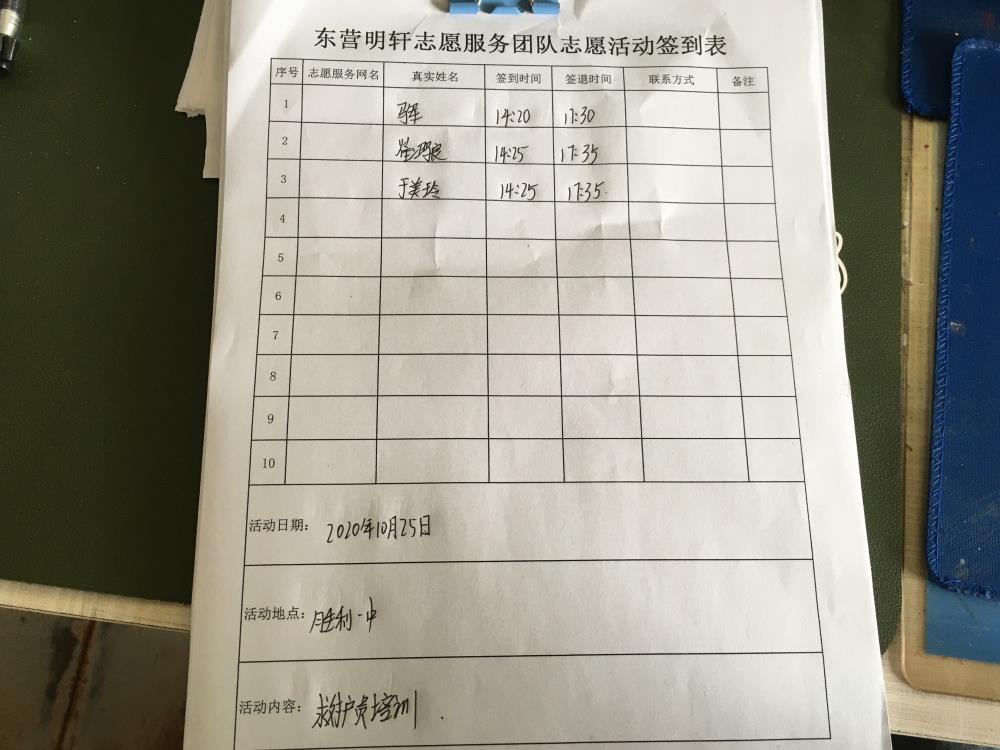 东营明轩志愿服务团队志愿活动签到表
序号 志愿服务网名 真实姓名 签到时间 签退时间 联系方式 备注
1 14:20 17:30
2 14:25 17:35
3 于美玲 14:25 17:35
4
5
6
7
8
9
10
活动日期: 2020年10月25日
活动地点: 胜利一中
活动内容: 救护员培训